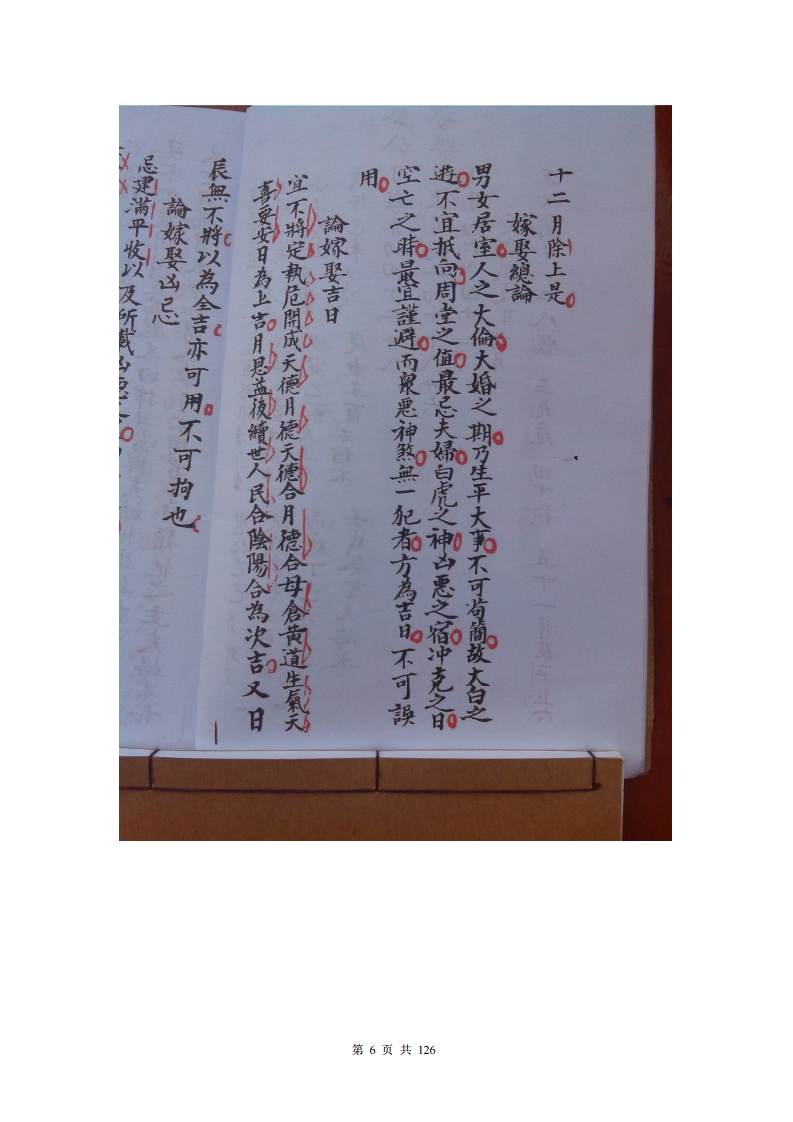 十二月除上是
嫁娶總論
男女居室人之大倫大婚之期乃生平大事不可苟簡故大白之
遊不宜抵向周堂之值最忌夫婦白虎之神凶惡之宿冲克之日
空亡之時最宜謹避而衆惡神煞無一犯者方為吉日不可誤
用
論嫁娶吉日
宜不將定執危開成天德月德天德合月德合母倉黄道生氣天
喜要安日為上吉月恩益後續世人民合陰陽合為次吉又日
辰無不將以為全吉亦可用不可拘也
論嫁娶凶忌
忌建滿平收以及所載凶
第 6 页 共 126